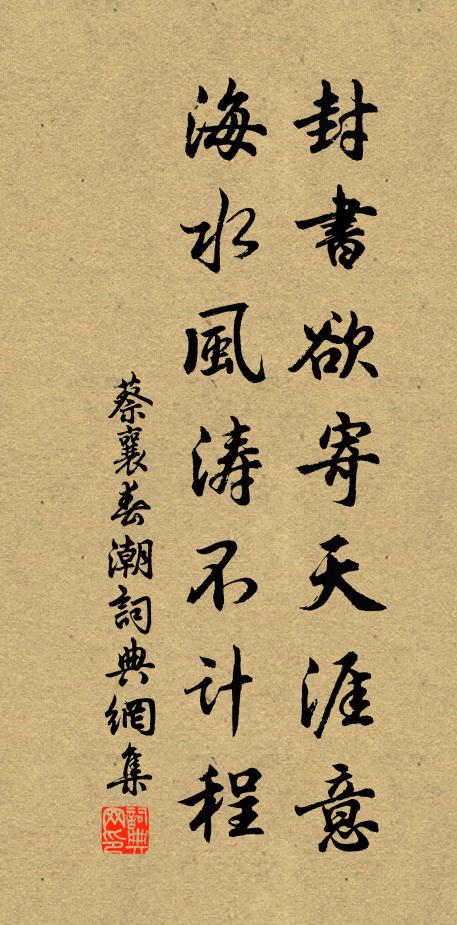 封書欲寄天涯意
海水風濤不計程
蔡襄春潮詞典網集
詞典網印